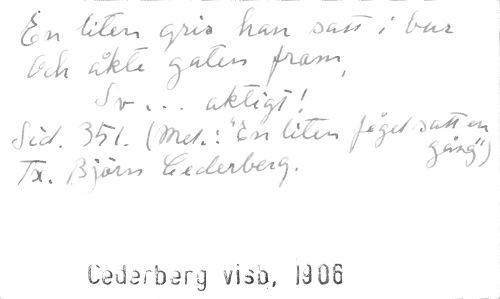 En liten gris han satt i bur
Och åkte gatan fram,
Sv... aktigt!
Sid. 351. (Mel.: "En liten fågel satt en
gång")
Tx. Björn Cederberg.
Cederberg visb, 1906